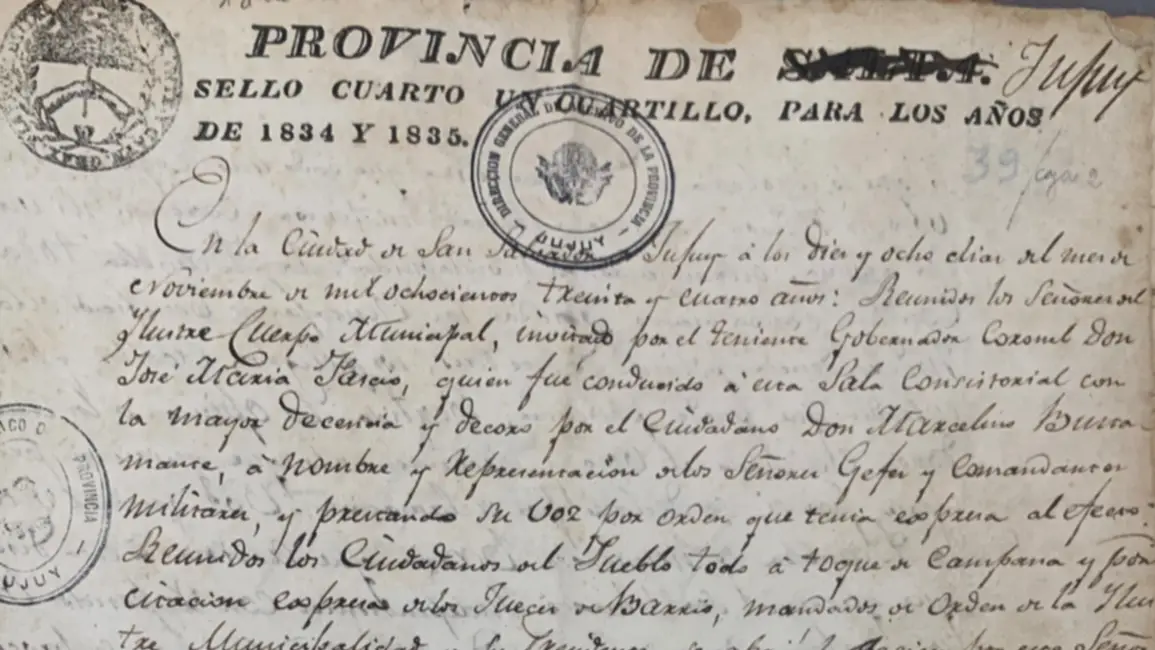 PROVINCIA DE SALTA. Jujuy
SELLO CUARTO UN CUARTILLO, PARA LOS AÑOS
DE 1834 Y 1835.
39
DIRECCION GENERAL DE DE LA PROVINCIA
JUJUY
En la Ciudad de San Salvador Jujuy à los dies y ocho dias del mes de
Noviembre de mil ochocientos treinta y cuatro años: Reunidos los Señores del
Ylustre Cuerpo Municipal, invitado por el teniente Gobernador Coronel Don
José Maria Fascio, quien fue conducido à esta Sala Consistorial con
la mayor decencia y decoro por el Ciudadano Don Marcelino Busta-
mante, à nombre y Representacion de los Señores Gefes y Comandantes
militares, y prestando su voz por orden que tenia expresa al efecto:
Reunidos los Ciudadanos del Pueblo todo à toque de Campana y por
citacion expresa de los Jueces de Barrio, mandados de orden de la Ylus-
tre Municipalidad y su Presidente, se abrió por este Señor
PROVINCIA
JUJUY